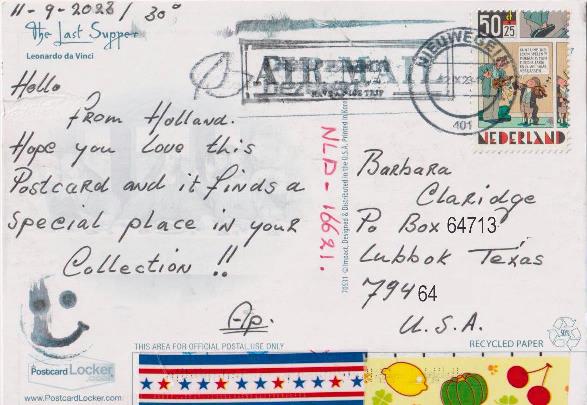 11-9-2023 / 30°
The Last Supper
Leonardo da Vinci
Hello
From Holland.
Hope you love this
Postcard and it finds a
special place in your
Collection !!
AIR MAIL
HAVE A NICE TRIP
NIEUWEGEIN
401
50
25
NEDERLAND
NLD-16621.
70531 © Impact, Designed & Distributed in the U.S.A. Printed in Korea
Barbara
Claridge
Po Box 64713
Lubbok Texas
79464
U.S.A.
THIS AREA FOR OFFICIAL POSTAL USE ONLY
RECYCLED PAPER
50%
Postcard Locker.com
www.PostcardLocker.com